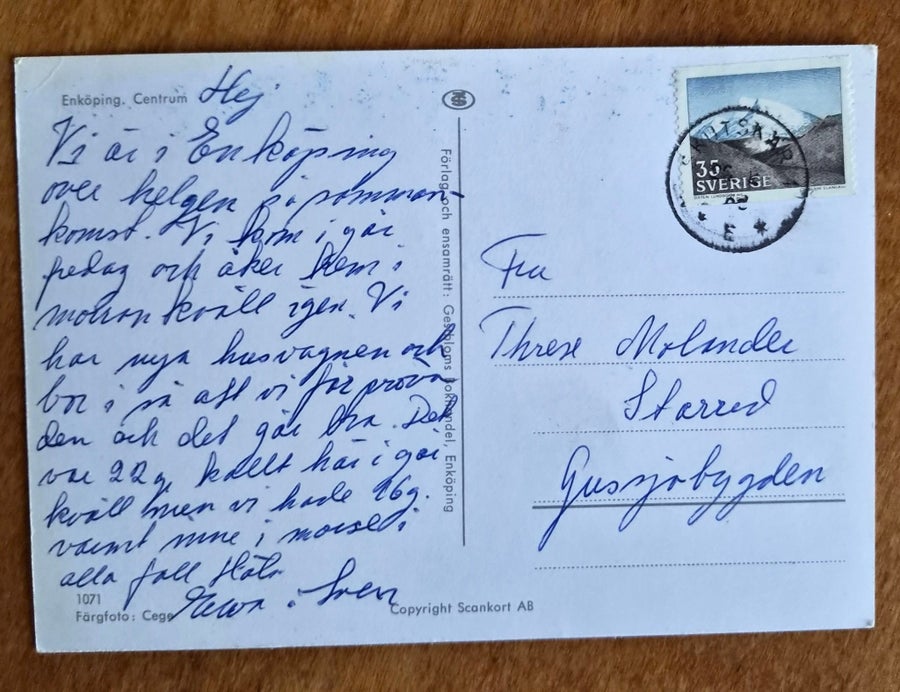 Enköping. Centrum
Hej
Vi är i Enköping
över helgen på samman-
komst. Vi kom i går
fredag och åker hem i
morron kväll igen. Vi
har nya husvagnen och
bor i så att vi får pröva
den och det går bra. Det
var 22g kallt här i går
kväll men vi hade 26g.
varmt inne i morse i
alla fall Häls
i Sven
1071
Färgfoto: Cege
Copyright Scankort AB
Förlag och ensamrätt: Gestbloms Bokhandel, Enköping
35
SVERIGE
E
Fru
Threse Molander
Starred
Gussjöbygden